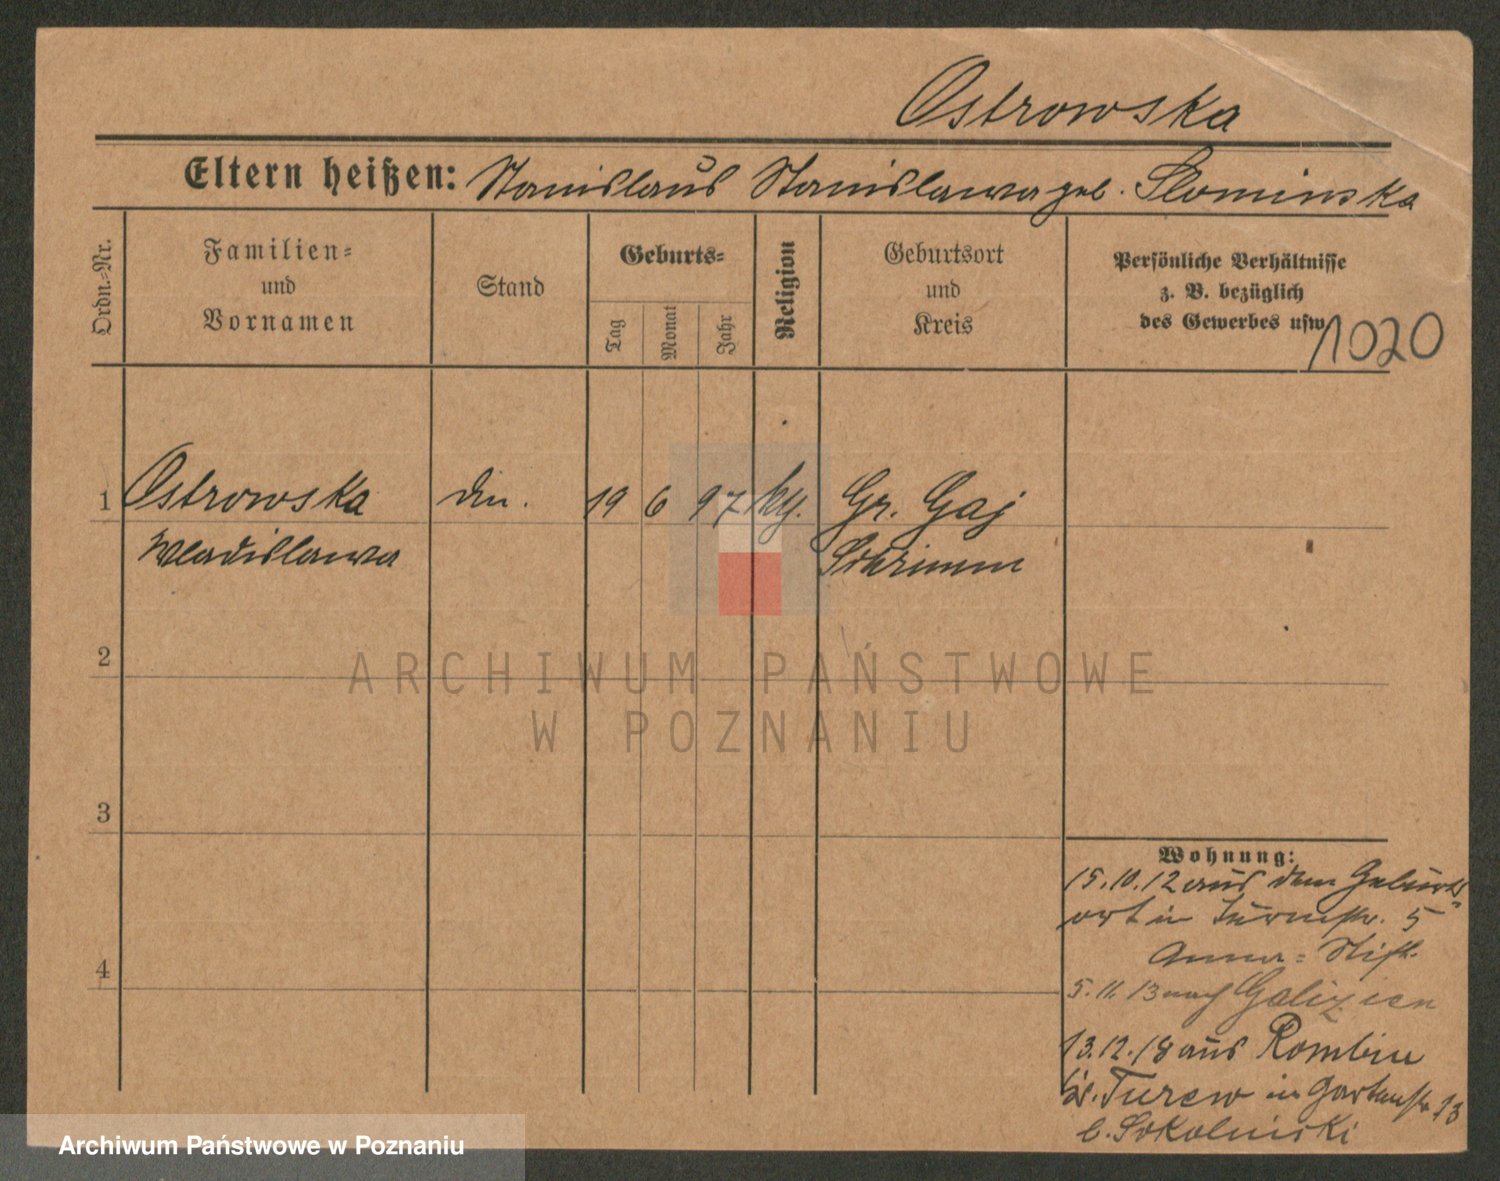 Ostrowska
Eltern heißen: Stanislaus Stanislawa geb. Slominska
Ordn.-Nr.
Familien-
und
Vornamen
Stand
Geburts-
Tag
Monat
Jahr
Religion
Geburtsort
und
Kreis
Persönliche Verhältnisse
z. B. bezüglich
des Gewerbes usw.
1020
1 Ostrowska 19 6 97 Gr. Gaj
Wladislawa Schrimm
2
3
4
Wohnung:
15.10.12 aus dem Geburts-
ort in Turmstr. 5
Anna-Stift.
5.11.13 nach Galizien
13.12.18 aus Rombin
Turew in Gartenstr. 13
b. Sokolniski
ARCHIWUM PAŃSTWOWE
W POZNANIU
Archiwum Państwowe w Poznaniu